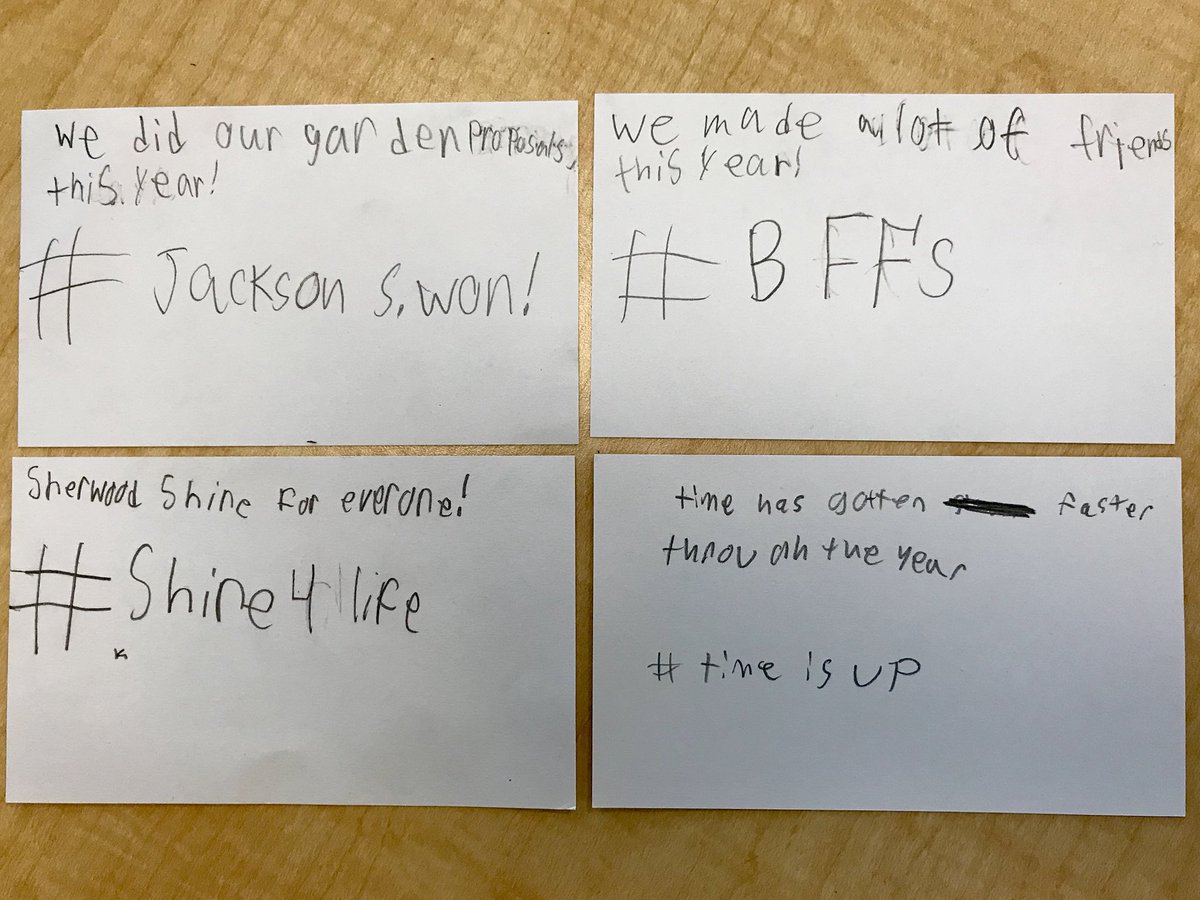 We did our garden proposals,
this year!
# Jackson S. won!
We made a lot of friends
this year!
# BFFs
Sherwood Shine For everone!
#Shine4life
time has gotten faster
through the year
# time is up